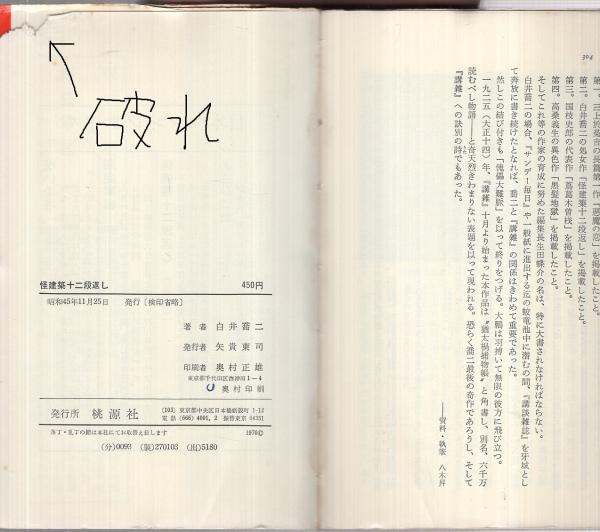 破れ
怪建築十二段返し 450円
昭和45年11月25日 発行〔検印省略〕
著者 白井喬二
発行者 矢貴東司
印刷者 奥村正雄
東京都千代田区西神田1-4
奥村印刷
発行所 桃源社
(103) 東京都中央区日本橋堀留町 1-12
電話 (666) 4001, 2 振替東京 64351
落丁・乱丁の節は本社にてお取替え致します 1970©
(分)0093 (製)270103 (出)5180
394
第一。三上於菟吉の長篇第一作『悪魔の恋』を掲載したこと。
第二。白井喬二の処女作『怪建築十二段返し』を掲載したこと。
第三。国枝史郎の代表作『蔦葛木曽桟』を掲載したこと。
第四。高桑義生の異色作『黒髪地獄』を掲載したこと。
そしてこれ等の作家の育成に努めた編集長生田蝶介の名は、特に大書されなければならない。
白井喬二の場合、『サンデー毎日』や一般紙に進出する迄の蛟竜池中に潜むの間、『講談雑誌』を牙城とし
て奔放に書き続けたとなれば、喬二と『講雑』の関係はきわめて重要であった。
然しこの結び付きも「傀儡大難脈」を以って終りをつげる。大鵬は羽搏いて無限の彼方に飛び立つ。
一九二五（大正十四）年、『講雑』十月より始まった本作品は〝猶太禍捕物帳〟と角書し、別名、六千万
読むべし物語――と奇天烈きわまりない表題を以って現われる。恐らく喬二最後の奇作であろうし、そして
『講雑』への訣別の詩でもあった。
――資料・執筆 八木昇